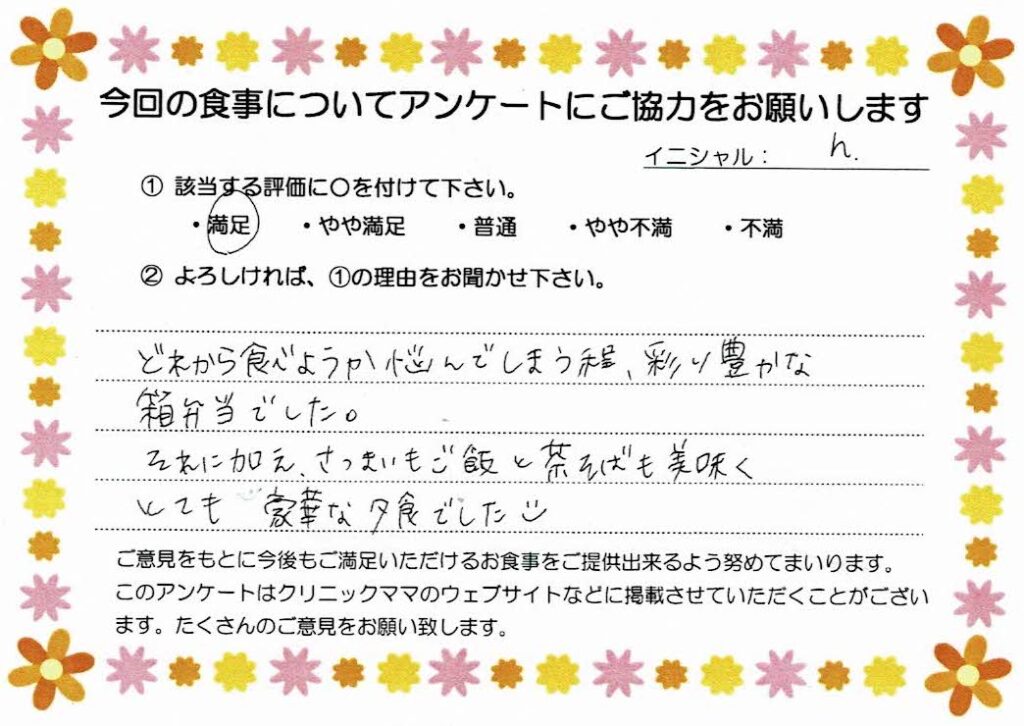 今回の食事についてアンケートにご協力をお願いします
イニシャル： h.
① 該当する評価に〇を付けて下さい。
・満足 ・やや満足 ・普通 ・やや不満 ・不満
② よろしければ、①の理由をお聞かせ下さい。
どれから食べようか悩んでしまう程、彩り豊かな
箱弁当でした。
それに加え、さつまいもご飯と茶そばも美味く
とても豪華な夕食でした
ご意見をもとに今後もご満足いただけるお食事をご提供出来るよう努めてまいります。
このアンケートはクリニックママのウェブサイトなどに掲載させていただくことがござい
ます。たくさんのご意見をお願い致します。